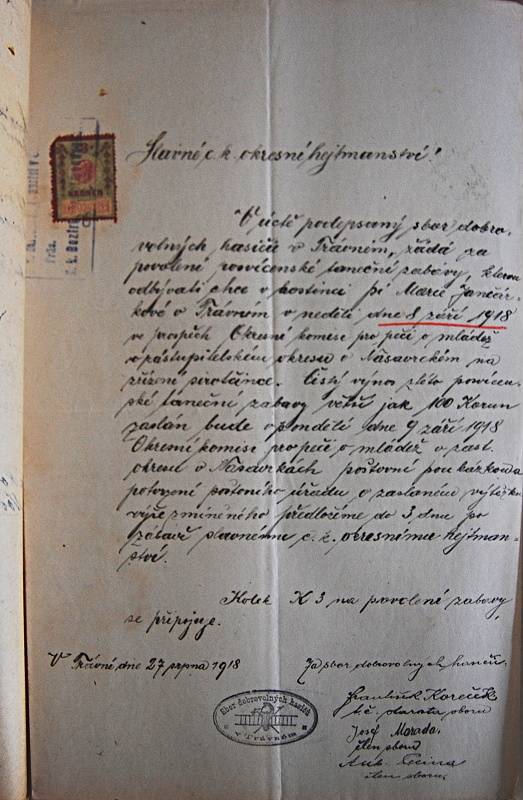 Slavné c. k. okresní hejtmanství!
V úctě podepsaný sbor dobro-
volných hasičů v Trávném, žádá za
povolení posvícenské taneční zábavy, kterou
odbývati chce v hostinci pí Marie Jančár-
kové v Trávném v neděli dne 8 září 1918
ve prospěch Okresní komise pro péči o mládež
v zastupitelském okresu v Nasavrckém na
zřízení sirotčince. Čistý výnos této posvícen-
ské taneční zábavy větší jak 100 Korun
zaslán bude v pondělí dne 9 září 1918
Okresní komise pro péči o mládež v zast.
okresu v Nasavrkách poštovní poukázkou a
potvrzení poštovního úřadu o zaslaném výtěžku
výše zmíněného předložíme do 3 dnů po
zábavě slavnému c. k. okresnímu hejtman-
ství.
Kolek K 3 na povolení zábavy
se připojuje.
V Trávné dne 27 srpna 1918
Za sbor dobrovolných hasičů
František
t. č. starosta sboru
Josef Morada,
člen sboru
Ant.
člen sboru
Sbor dobrovolných hasičů
v Trávném